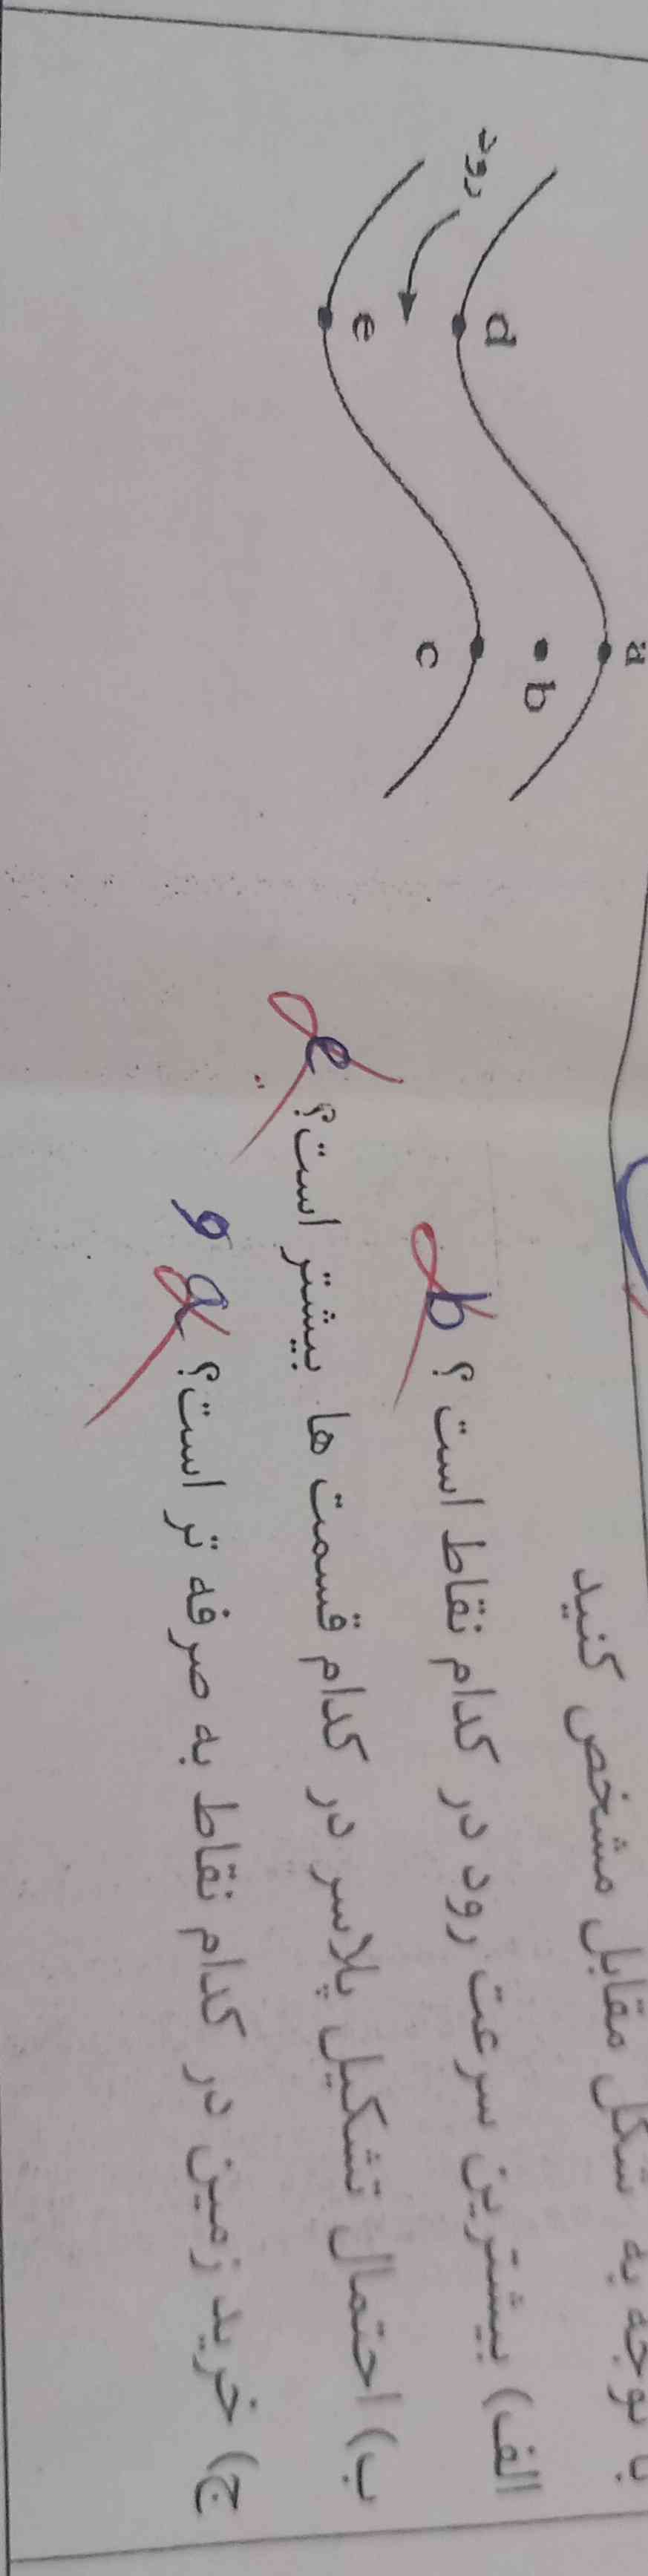 با توجه به شکل مقابل مشخص کنید
الف) بیشترین سرعت رود در کدام نقاط است ؟ b
ب) احتمال تشکیل پلاسر در کدام قسمت ها بیشتر است؟ e
ج) خرید زمین در کدام نقاط به صرفه تر است؟ a و
رود
d
e
a
b
c